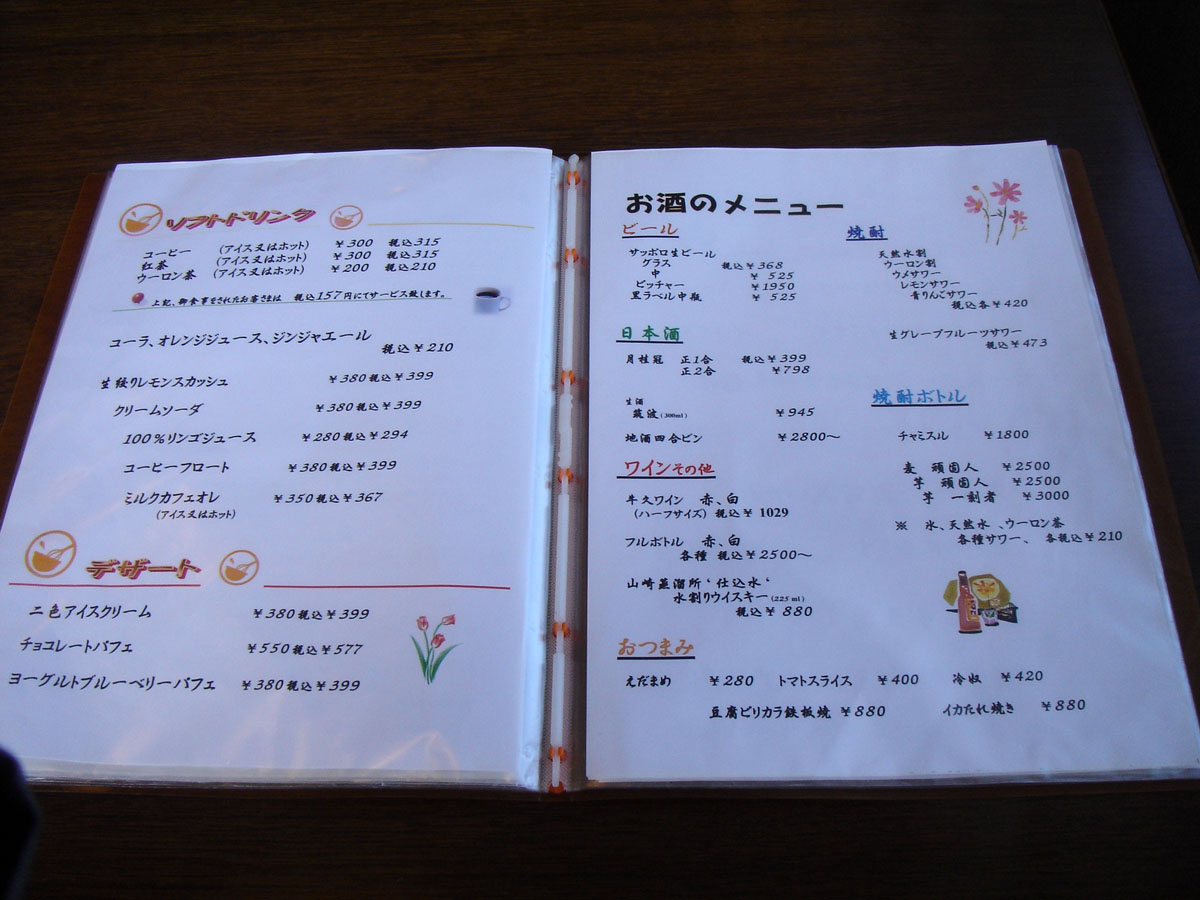 ソフトドリンク
コーヒー (アイス又はホット) ¥300 税込315
紅茶 (アイス又はホット) ¥300 税込315
ウーロン茶 (アイス又はホット) ¥200 税込210
上記、御食事をされたお客さまは 税込157円にてサービス致します。
コーラ、オレンジジュース、ジンジャエール
税込¥210
生絞りレモンスカッシュ ¥380税込¥399
クリームソーダ ¥380税込¥399
100%リンゴジュース ¥280税込¥294
コーヒーフロート ¥380税込¥399
ミルクカフェオレ ¥350税込¥367
(アイス又はホット)
デザート
二色アイスクリーム ¥380税込¥399
チョコレートパフェ ¥550税込¥577
ヨーグルトブルーベリーパフェ ¥380税込¥399
お酒のメニュー
ビール
サッポロ生ビール
グラス 税込¥368
中 ¥ 525
ピッチャー ¥1950
黒ラベル中瓶 ¥ 525
日本酒
月桂冠 正1合 税込¥399
正2合 ¥798
生酒
筑波(300ml) ¥945
地酒四合ビン ¥2800〜
ワインその他
牛久ワイン 赤、白
(ハーフサイズ) 税込¥ 1029
フルボトル 赤、白
各種 税込¥2500〜
山崎蒸溜所‘仕込水‘
水割りウイスキー(225 ml)
税込¥ 880
焼酎
天然水割
ウーロン割
ウメサワー
レモンサワー
青りんごサワー
税込各¥420
生グレープフルーツサワー
税込¥473
焼酎ボトル
チャミスル ¥1800
麦 頑固人 ¥2500
芋 頑固人 ¥2500
芋 一刻者 ¥3000
※ 水、天然水、ウーロン茶
各種サワー、 各税込¥210
おつまみ
えだまめ ¥280 トマトスライス ¥400 冷奴 ¥420
豆腐ピリカラ鉄板焼 ¥880 イカたれ焼き ¥880